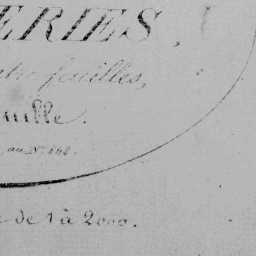 ERIES,
feuilles,
uille.
de 1 à 2000.